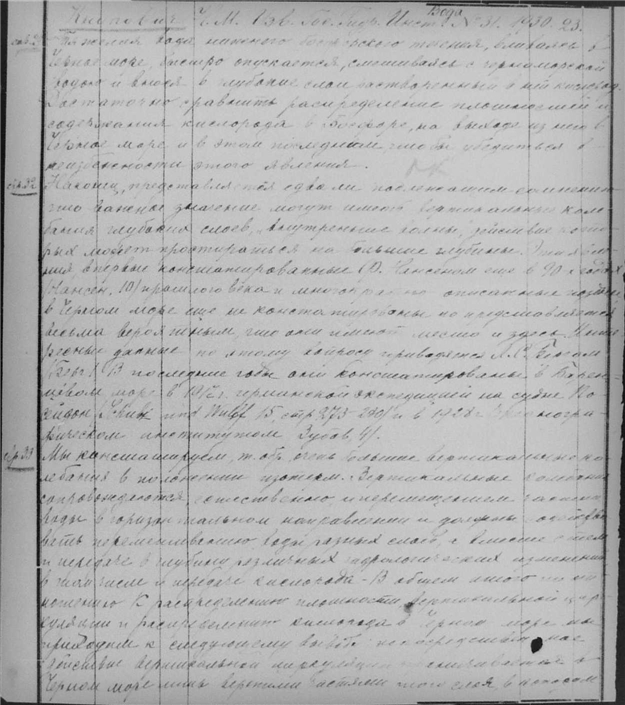 Книпович Н. М. Изв. Гос. Гидр. Инст. Вода № 31. 1930. 23.
Тяжелая вода нижнего босфорского течения, вливаясь в
Черное море, быстро опускается, смешиваясь с черноморской
водою и внося в глубокие слои растворенный в ней кислород.
Достаточно сравнить распределение плотностей и
содержания кислорода в Босфоре, на выходе из него в
Черное море и в этом последнем чтобы убедиться в
неизбежности этого явления.
Наконец, представляется едва ли подлежащим сомнению
что важное значение могут иметь вертикальные коле-
бания глубоких слоев, внутренние волны, действие кото-
рых может простираться на большие глубины. Эти явле-
ния впервые констатированные Ф. Нансеном еще в 90-х годах
(Нансен, 10) прошлого века и многократно описанные позднее
в Черном море еще не констатированы но представляется
весьма вероятным, что они имеют место и здесь. Инте-
ресные данные по этому вопросу приводятся Л. С. Бергом
Берг 1. В последние годы они констатированы в Барен-
цевом море в 1927 г. германской экспедицией на судне По-
сейдон 15, стр. 273 и в 1928 г. Океаногра-
фическом институтом, Зубов 4).
Мы констатируем, т. об. очень большие вертикальные ко-
лебания в положении изотерм. Вертикальные колебания
сопровождаются, естественно, и перемещением частиц
воды в горизонтальном направлении и должны содейство-
вать перемешиванию воды разных слоев, а вместе с тем
и передаче в глубину различных гидрологических изменений
в том числе и передаче кислорода. В общем итоге по от-
ношению к распределению плотности вертикальной цир-
куляции и распределению кислорода в Черном море мы
приходим к следующему выводу: непосредственное
действие вертикальной циркуляции ограничивается в
Черном море лишь верхними частями того слоя, в котором